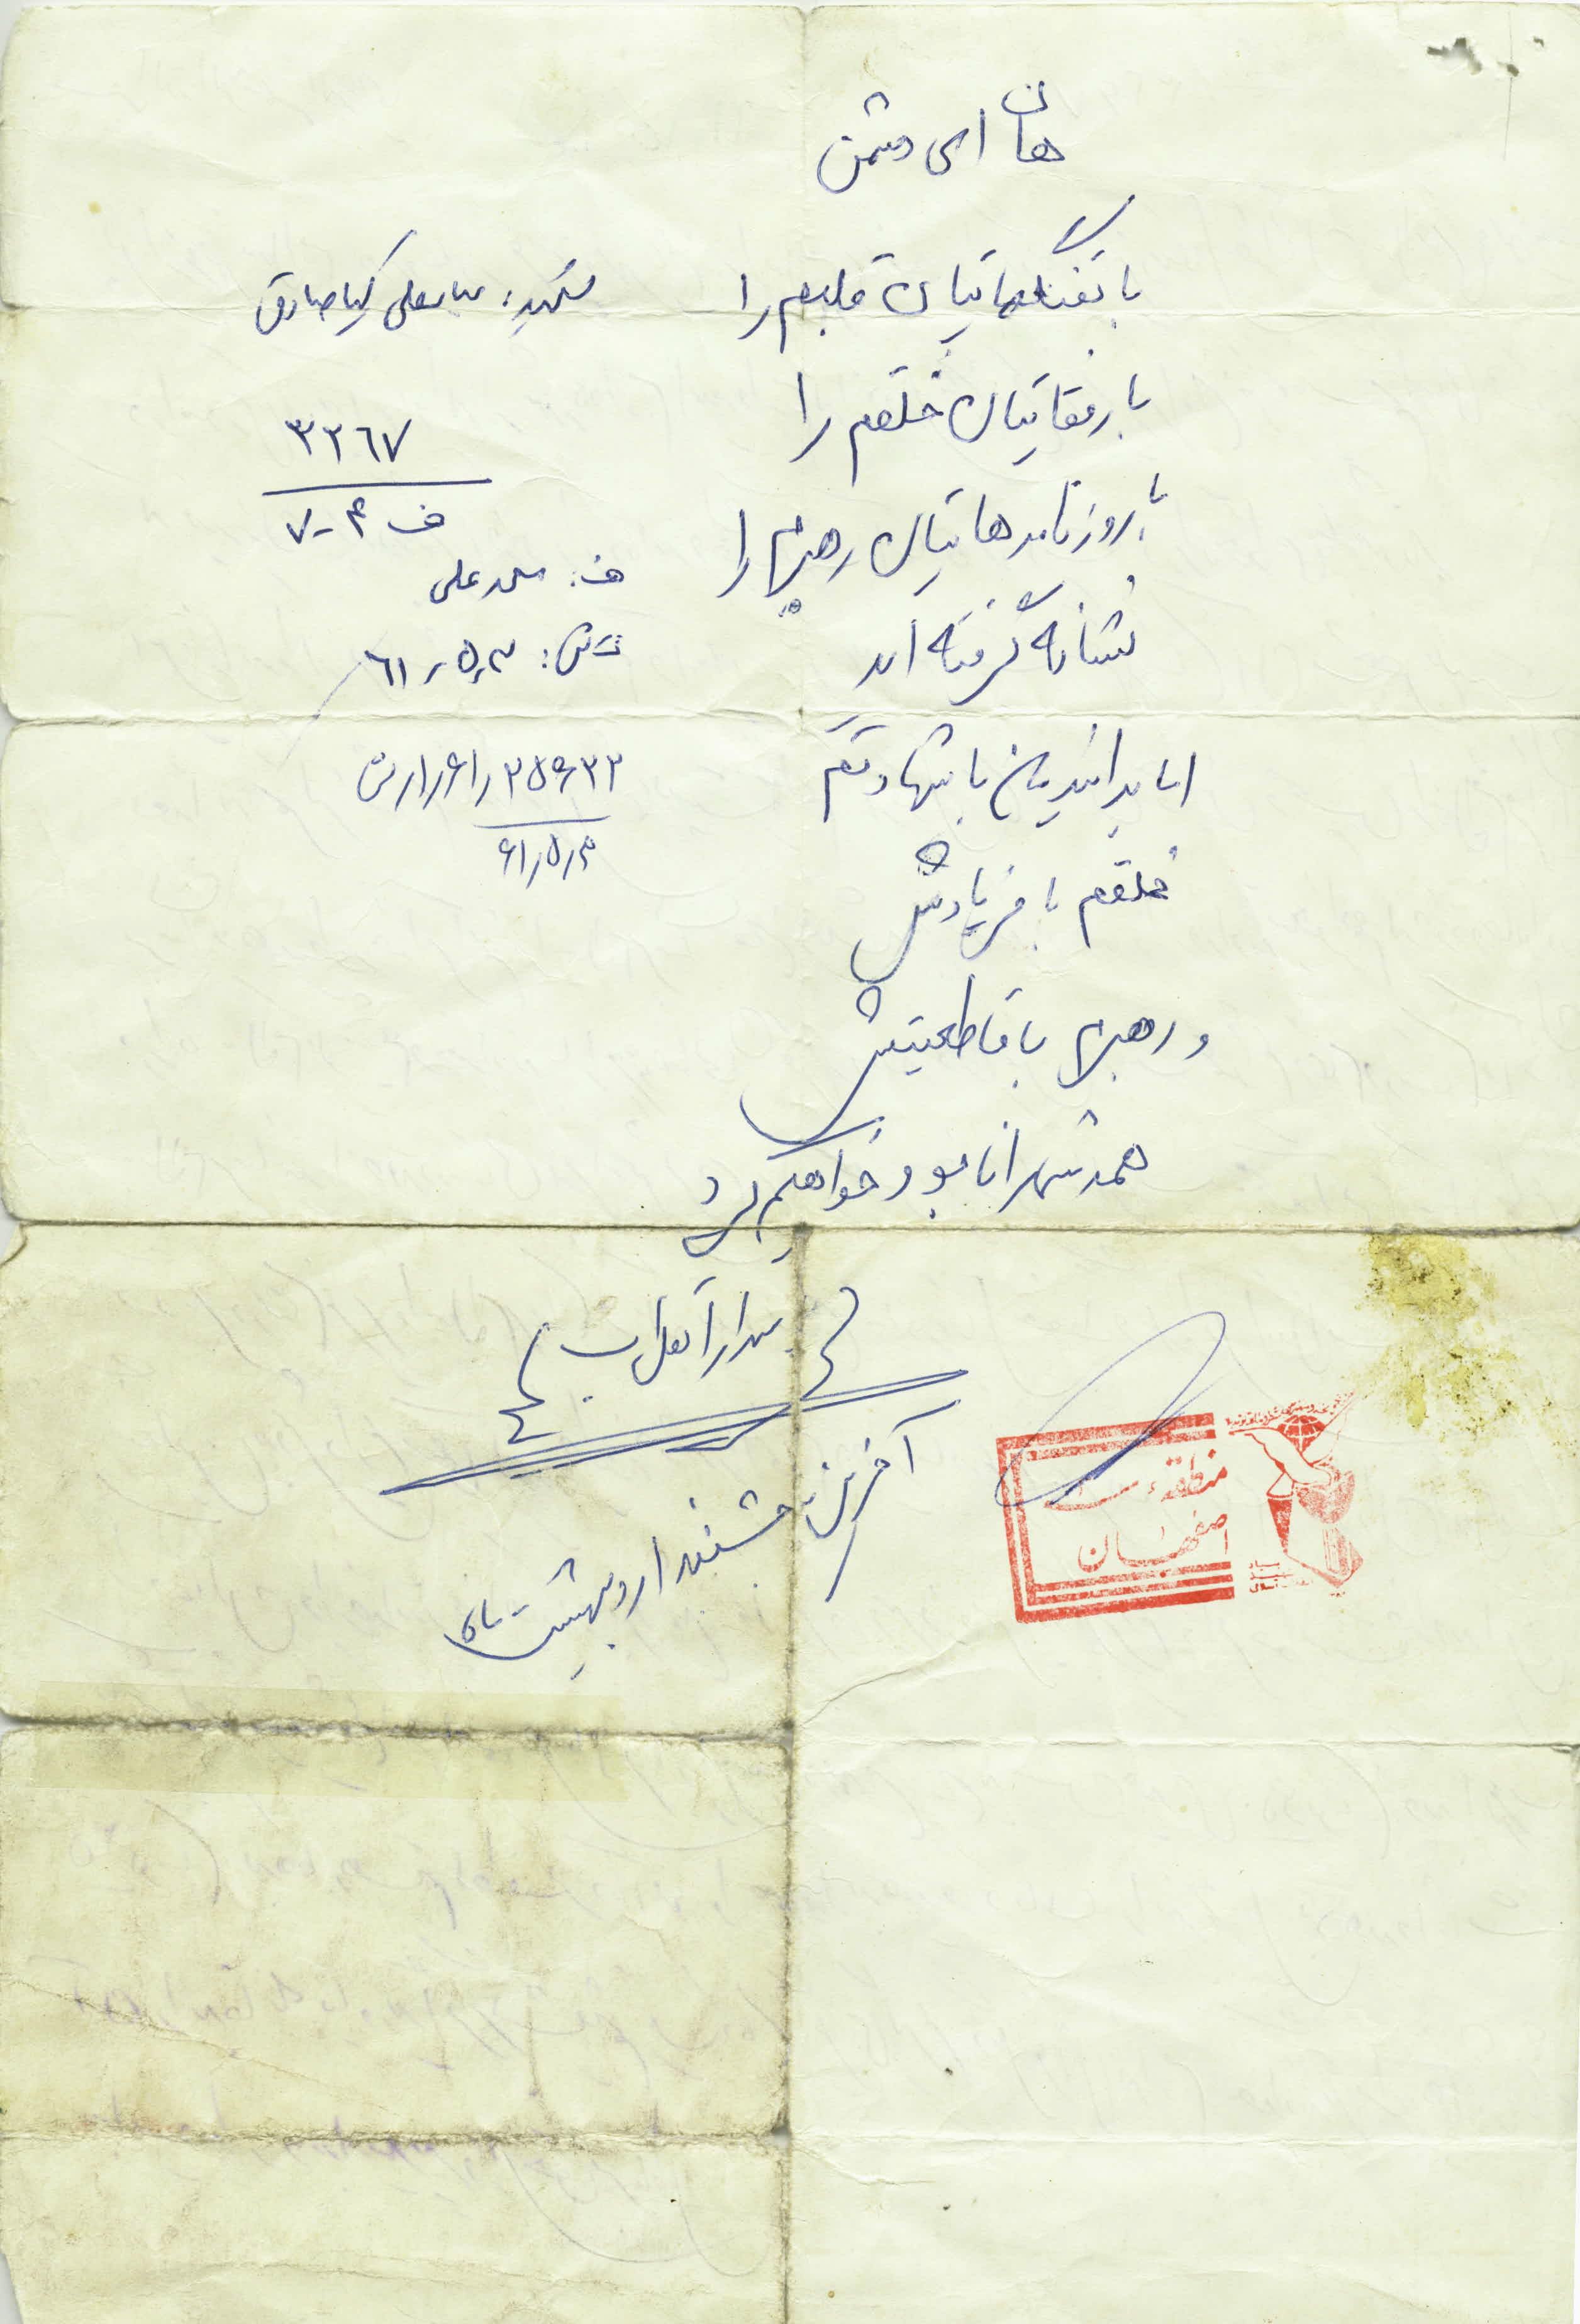 هان ای دشمن
با تفنگهایتان قلبم را
با رفقایتان خلقم را
با روزنامه هایتان رهبرم را
نشانه گرفته اید
اما بدانید من با شهادتم
خلقم با فریادش
و رهبرم با قاطعیتش
همه شما را نابود خواهیم کرد
آخرین پنجشنبه اردیبهشت ماه
شهید: عباسعلی کیا صادق
۳۲۶۷
ف ۴-۷
ف: محمد علی
ت ش: ۶۱٫۵٫۳
۶۱٫۵٫۳
منطقه ۲
اصفهان